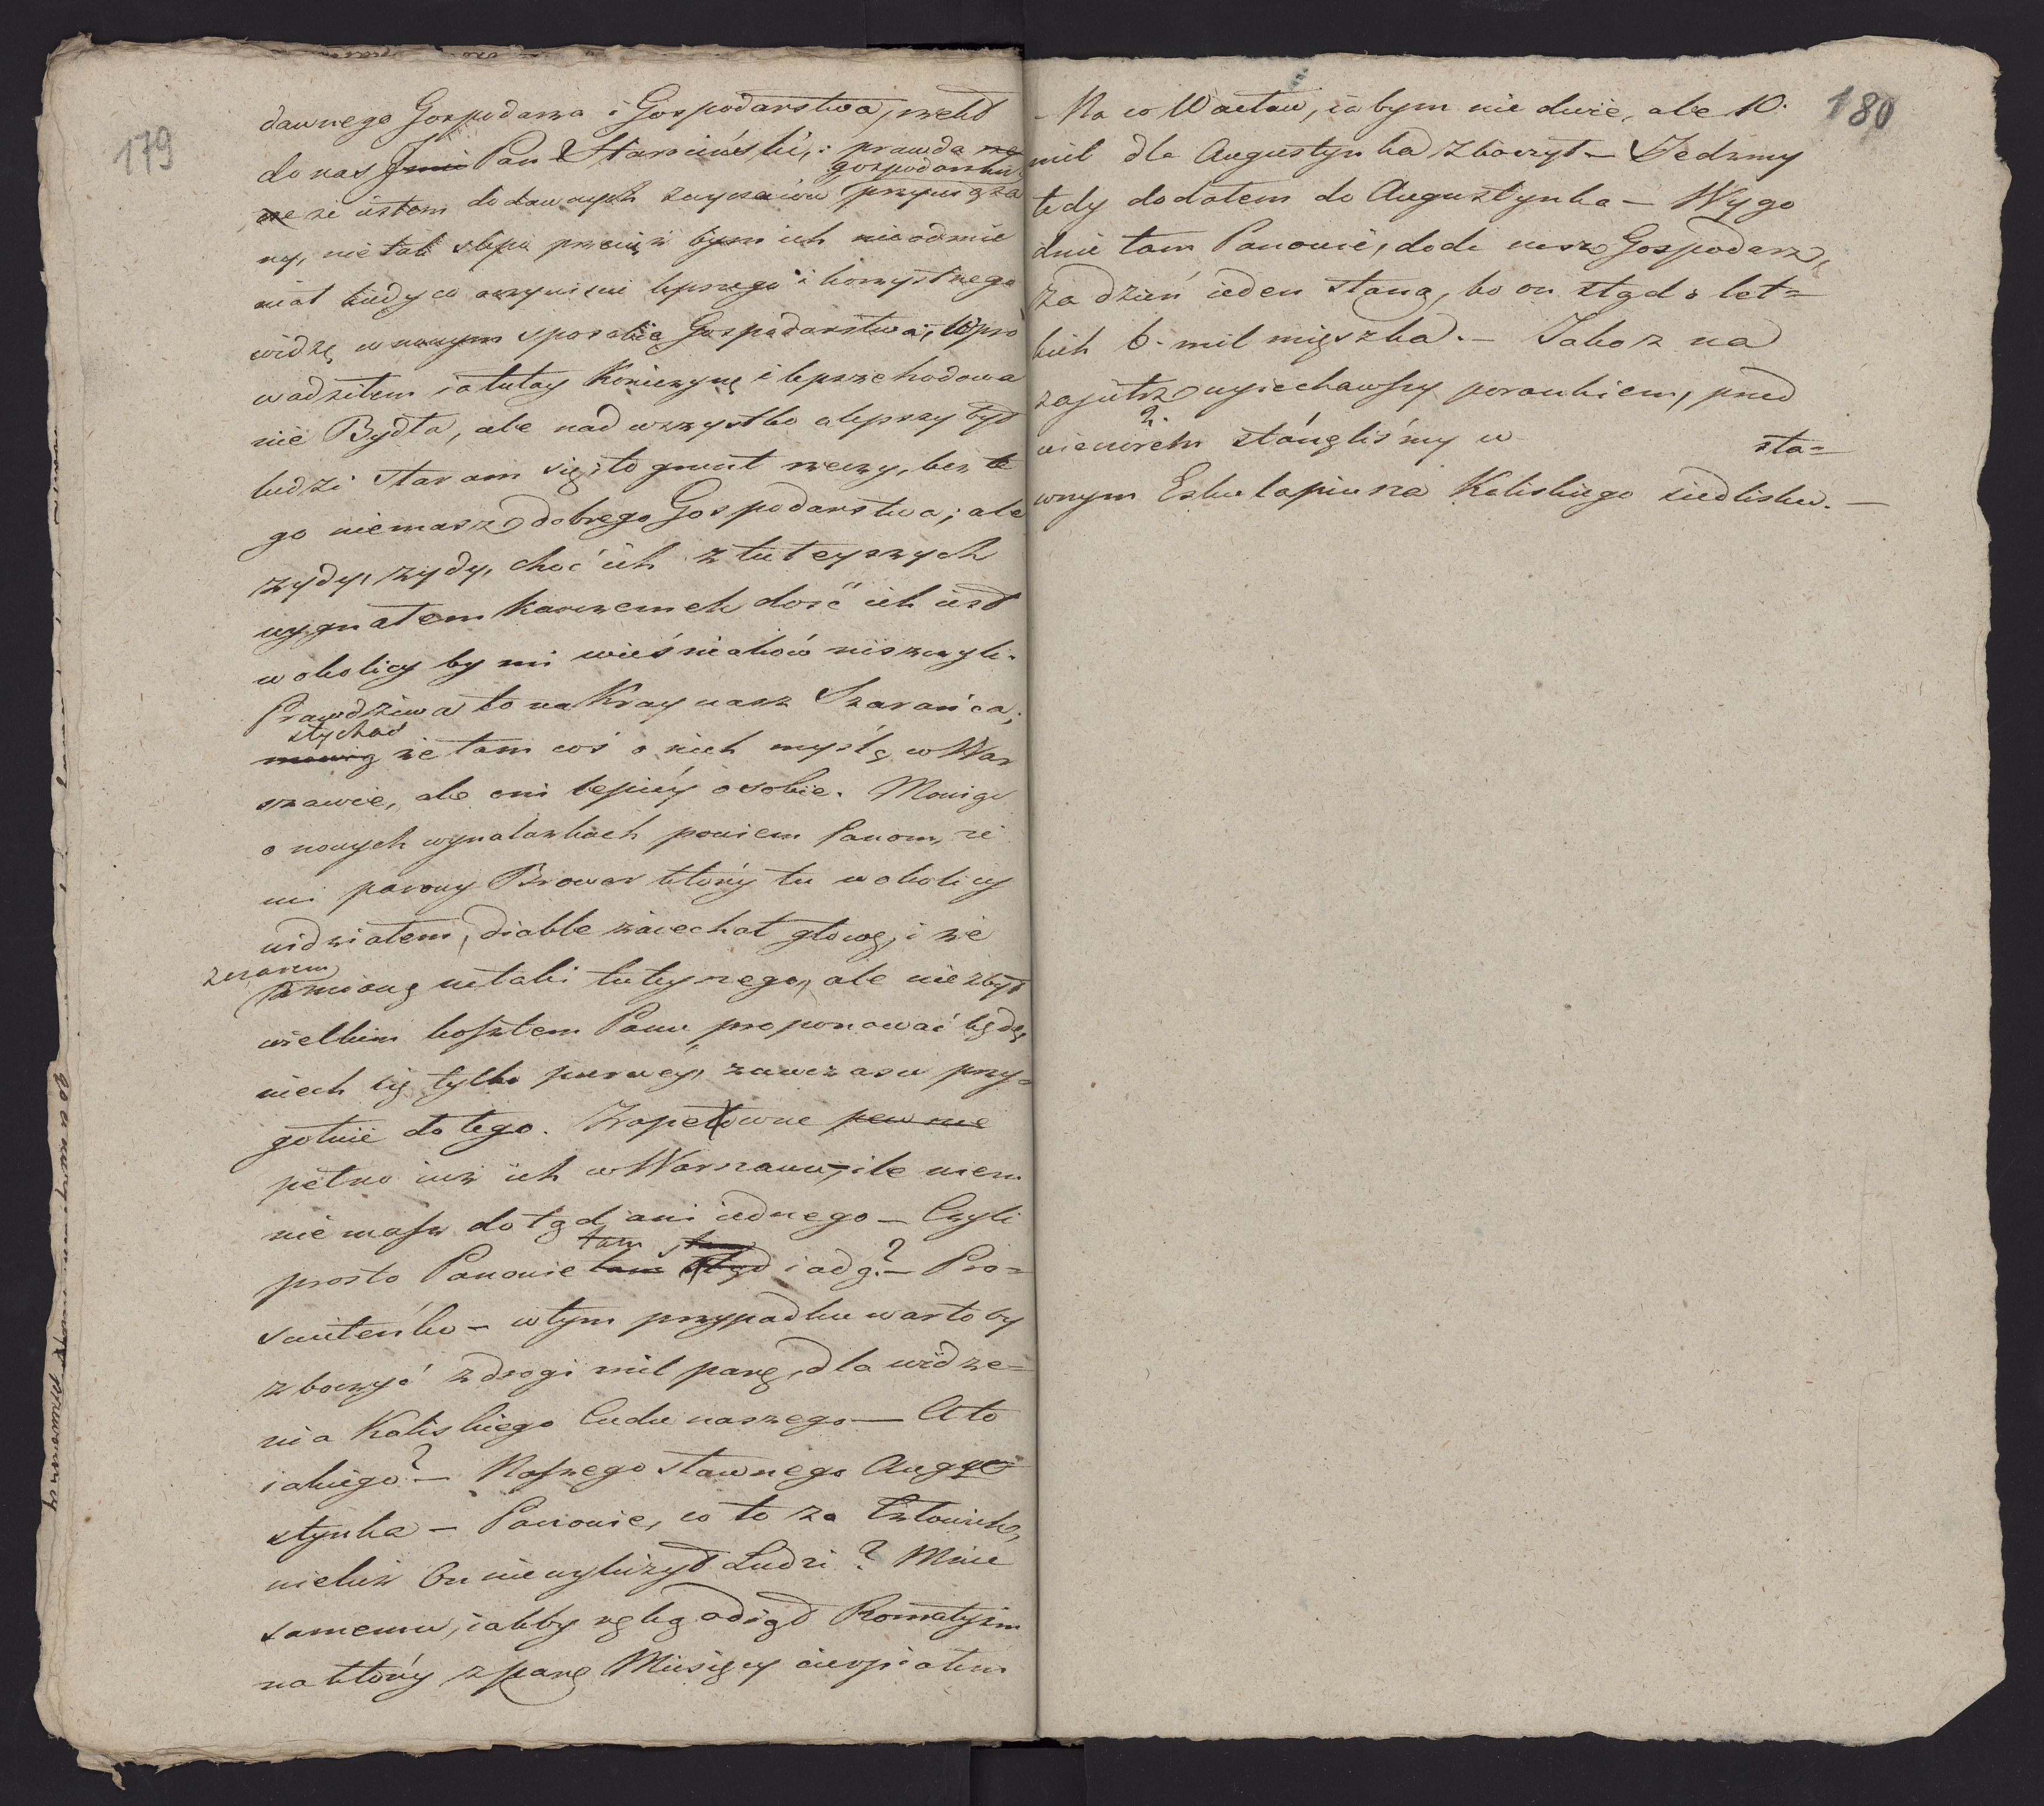 179
dawnego Gospodarza i Gospodarstwa, rzekł
do nas Jmci Pan Starzinski,: prawda
gospodarskich
że ze iestem do dawnych zwyczaiów przywięza
ny, nie tak ślepo przecięż bym ich nieodmie
niał kiedy co oczywiście lepszego i korzystnego
widzę w nowym sposobie Gospodarstwa; Wpro
wadziłem ia tutay Koniczynę i lepsze hodowa
nie Bydła, ale nad wszystko o lepszy byt
ludzi staram się, to grunt rzeczy, bez te
go niemasz dobrego Gospodarstwa; ale
żydy, żydy, choć ich z tuteyszych
wygnałem karczemek dość ich iest
w okolicy by mi wieśniaków niszczyli.
Prawdziwa to na Kray nasz Szarańcza;
słychać
mówią że tam coś o nich myślą w War
szawie, ale oni lepiéy o sobie. Mówiąc
o nowych wynalazkach powiem Panom, że
mi parowy Browar który tu w okolicy
widziałem, diable zaiechał głowę, i że
zczasem
zmianę na taki tuteyszego, ale nie zbyt
wielkim kosztem Panu proponować będę,
niech się tylko pierwéy zawczasu przy=
gotuie do tego. Zapewne pewnie
pełno iuż ich w Warszawie, ile wiem
nie masz dotąd ani iednego – Czyli
tam
prosto Panowie tam stąd iadą? – Pro=
sciuteńko – w tym przypadku wartoby
zboczyć z drogi mil parę, dla widze=
nia Kaliskiego Cudu naszego – A to
iakiego? – Naszego sławnego Augu
stynka – Panowie, co to za Człowiek,
wieluż On nie wyleczył Ludzi? Mnie
samemu, iakby ręką odiął Romatyzm
na który z parę Miesięcy cierpiałem
180
– Na co Wacław, ia bym nie dwie, ale 10.
mil dla Augustynka zboczył – Jedzmy
tedy dodałem do Augustynka – Wygo
dnie tam Panowie, doda nasz Gospodarz,
za dzień ieden staną, bo on stąd o let=
kich 6. mil mięszka. – Jakoż na
zajutrz wyiechawszy porankiem, przed
wieczorem stanęliśmy w sła=
wnym Eskulapiusza Kaliskiego siedlisku. –